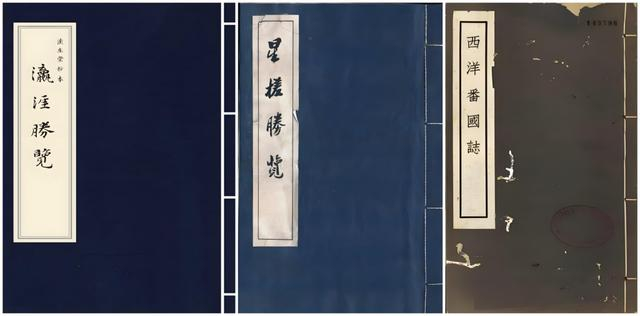 淡生堂抄本
瀛涯勝覽
星槎勝覽
西洋番國誌